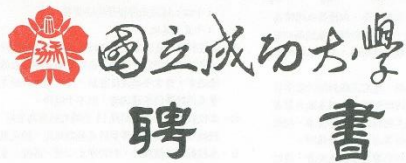 國立成功大學
聘書